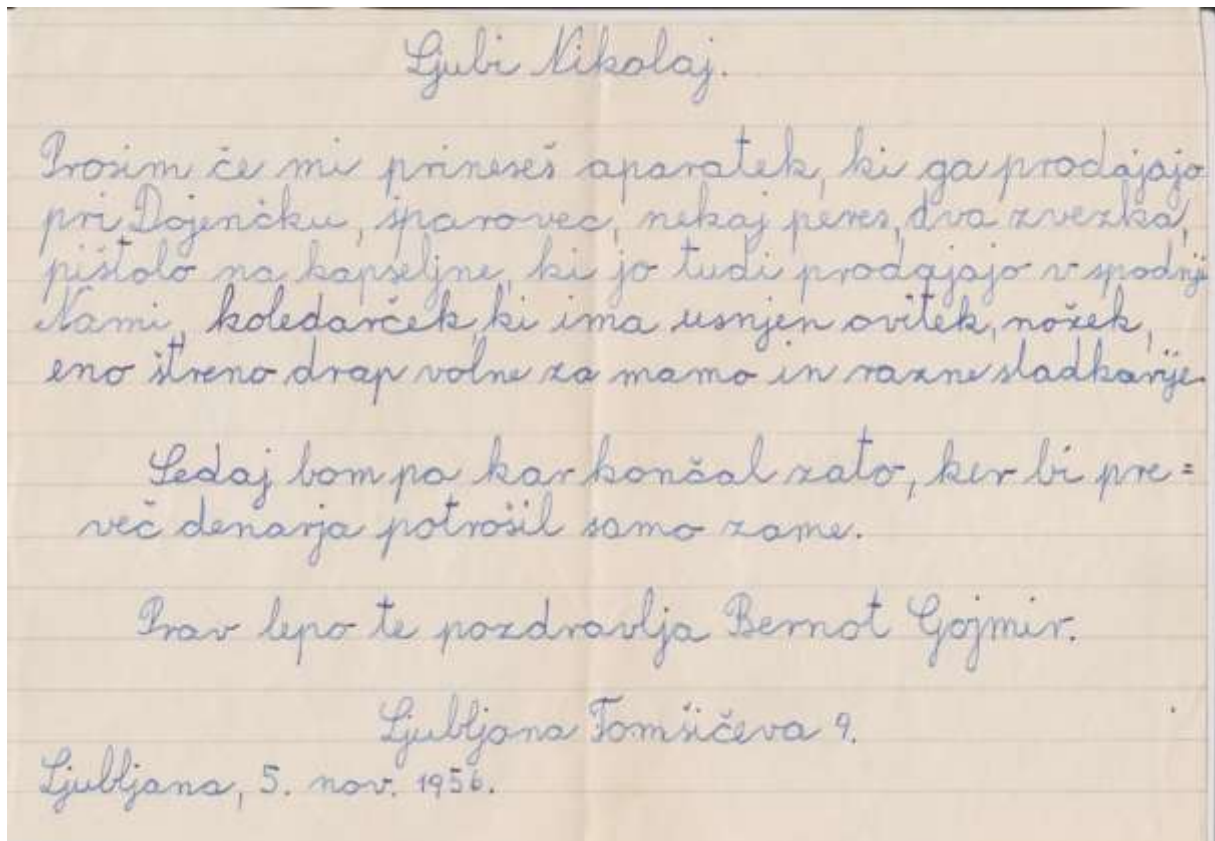 Ljubi Nikolaj.
Prosim če mi prineseš aparatek, ki ga prodajajo
pri Dojenčku, šparovec, nekaj peres, dva zvezka,
pištolo na kapseljne, ki jo tudi prodajajo v spodnji
Nami, koledarček, ki ima usnjen ovitek, nožek,
eno štreno drap volne za mamo in razne sladkarije.
Sedaj bom pa kar končal zato, ker bi pre=
več denarja potrošil samo zame.
Prav lepo te pozdravlja Bernot Gojmir.
Ljubljana Tomšičeva 9.
Ljubljana, 5. nov. 1956.